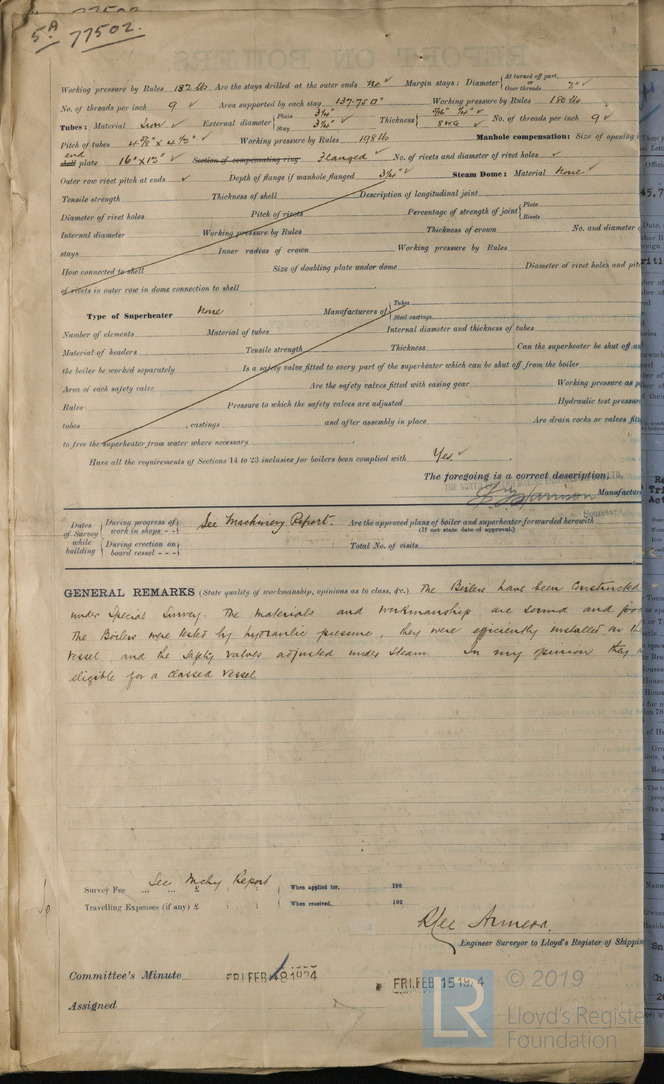 5A 77502.
Working pressure by Rules 182 lbs Are the stays drilled at the outer ends No ✓ Margin stays: Diameter { At turned off part, or Over threads
No. of threads per inch 9 ✓ Area supported by each stay Working pressure by Rules 180 lbs
Tubes: Material Iron ✓ External diameter { Plain 3¼" Stay 3¼" ✓ Thickness { 8 W G ✓ No. of threads per inch 9 ✓
Pitch of tubes ✓ Working pressure by Rules 198 lbs Manhole compensation: Size of opening
end shell plate 16" x 12" ✓ Section of compensating ring Flanged ✓ No. of rivets and diameter of rivet holes ✓
Outer row rivet pitch at ends ✓ Depth of flange if manhole flanged ✓ Steam Dome: Material None ✓
Tensile strength Thickness of shell Description of longitudinal joint
Diameter of rivet holes Pitch of rivets Percentage of strength of joint { Plate Rivets
Internal diameter Working pressure by Rules Thickness of crown No. and diameter
stays Inner radius of crown Working pressure by Rules
How connected to shell Size of doubling plate under dome Diameter of rivet holes and
of rivets in outer row in dome connection to shell
Type of Superheater None Manufacturers of { Tubes Steel castings
Number of elements Material of tubes Internal diameter and thickness of tubes
Material of headers Tensile strength Thickness Can the superheater be shut off
the boiler be worked separately Is a safety valve fitted to every part of the superheater which can be shut off from the boiler
Area of each safety valve Are the safety valves fitted with easing gear Working pressure as
Rules Pressure to which the safety valves are adjusted Hydraulic test pressure
tubes , castings and after assembly in place Are drain cocks or valves
to free the superheater from water where necessary
Have all the requirements of Sections 14 to 23 inclusive for boilers been complied with Yes. ✓
The foregoing is a correct description,
Harrison Manufacturer
Dates of Survey while building { During progress of work in shops - - } See Machinery Report. Are the approved plans of boiler and superheater forwarded herewith (If not state date of approval.)
{ During erection on board vessel - - - } Total No. of visits
GENERAL REMARKS (State quality of workmanship, opinions as to class, &c.) The Boilers have been constructed
under Special Survey. The materials and workmanship are sound and good
The Boilers were tested by hydraulic pressure, they were efficiently installed on the
Vessel and the safety valves adjusted under steam. In my opinion they
eligible for a classed vessel
Survey Fee ... ... £ See Mchy Report When applied for, 192
Travelling Expenses (if any) £ : : When received, 192
Engineer Surveyor to Lloyd's Register of Shipping
Committee's Minute FRI. FEB 8 1924 FRI. FEB 15 1924
Assigned
© 2019
Lloyd's Register
Foundation
LR